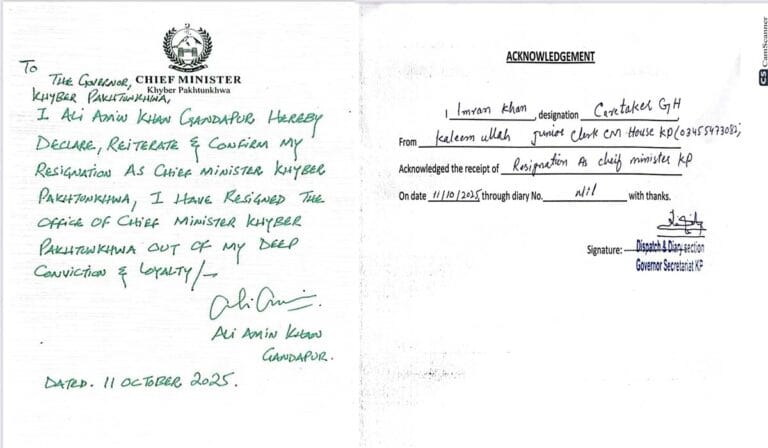 To
The Governor,
Khyber Pakhtunkhwa,
CHIEF MINISTER
Khyber Pakhtunkhwa
I Ali Amin Khan Gandapur Hereby
Declare, Reiterate & Confirm my
Resignation As Chief Minister Khyber
Pakhtunkhwa, I have Resigned The
Office of Chief Minister Khyber
Pakhtunkhwa out of my Deep
Conviction & Loyalty/-
Ali Amin Khan
Gandapur.
Dated. 11 October 2025.
ACKNOWLEDGEMENT
I Imran Khan, designation Caretaker GH
From Kaleem ullah Junior Clerk CM House KP (03455473082)
Acknowledged the receipt of Resignation As cheif minister KP
On date 11/10/2025 through diary No. Nil with thanks.
Signature:
Dispatch & Diary section
Governor Secretariat KP
CS CamScanner